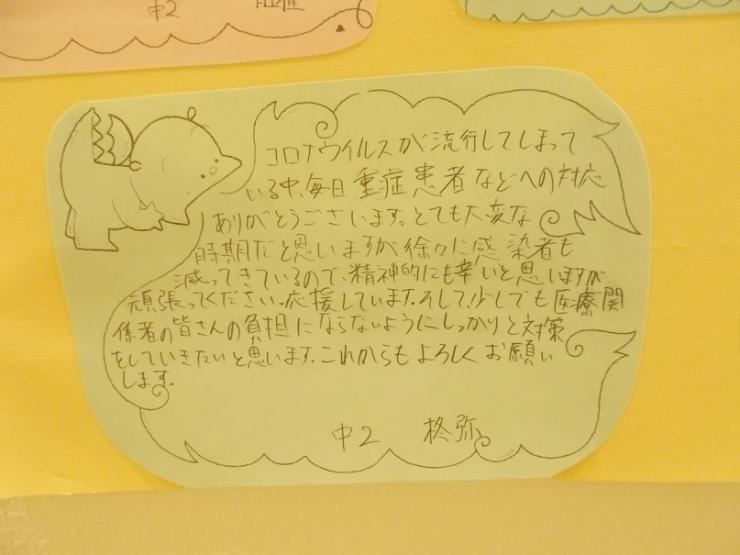 中2
コロナウイルスが流行してしまって
いる中、毎日重症患者などへの対応
ありがとうございます。とても大変な
時期だと思いますが徐々に感染者も
減ってきているので、精神的にも辛いと思いますが
頑張ってください。応援しています。そして、少しでも医療関
係者の皆さんの負担にならないようにしっかりと対策
をしていきたいと思います。これからもよろしくお願い
します。
中2 柊弥